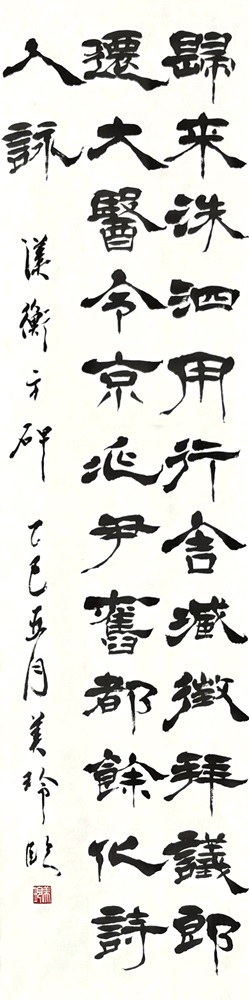 歸来洙泗用行舍臧徵拜議郎
遷大醫令京兆尹舊都餘化詩
人詠 漢衡方碑 乙巳五月美玲臨